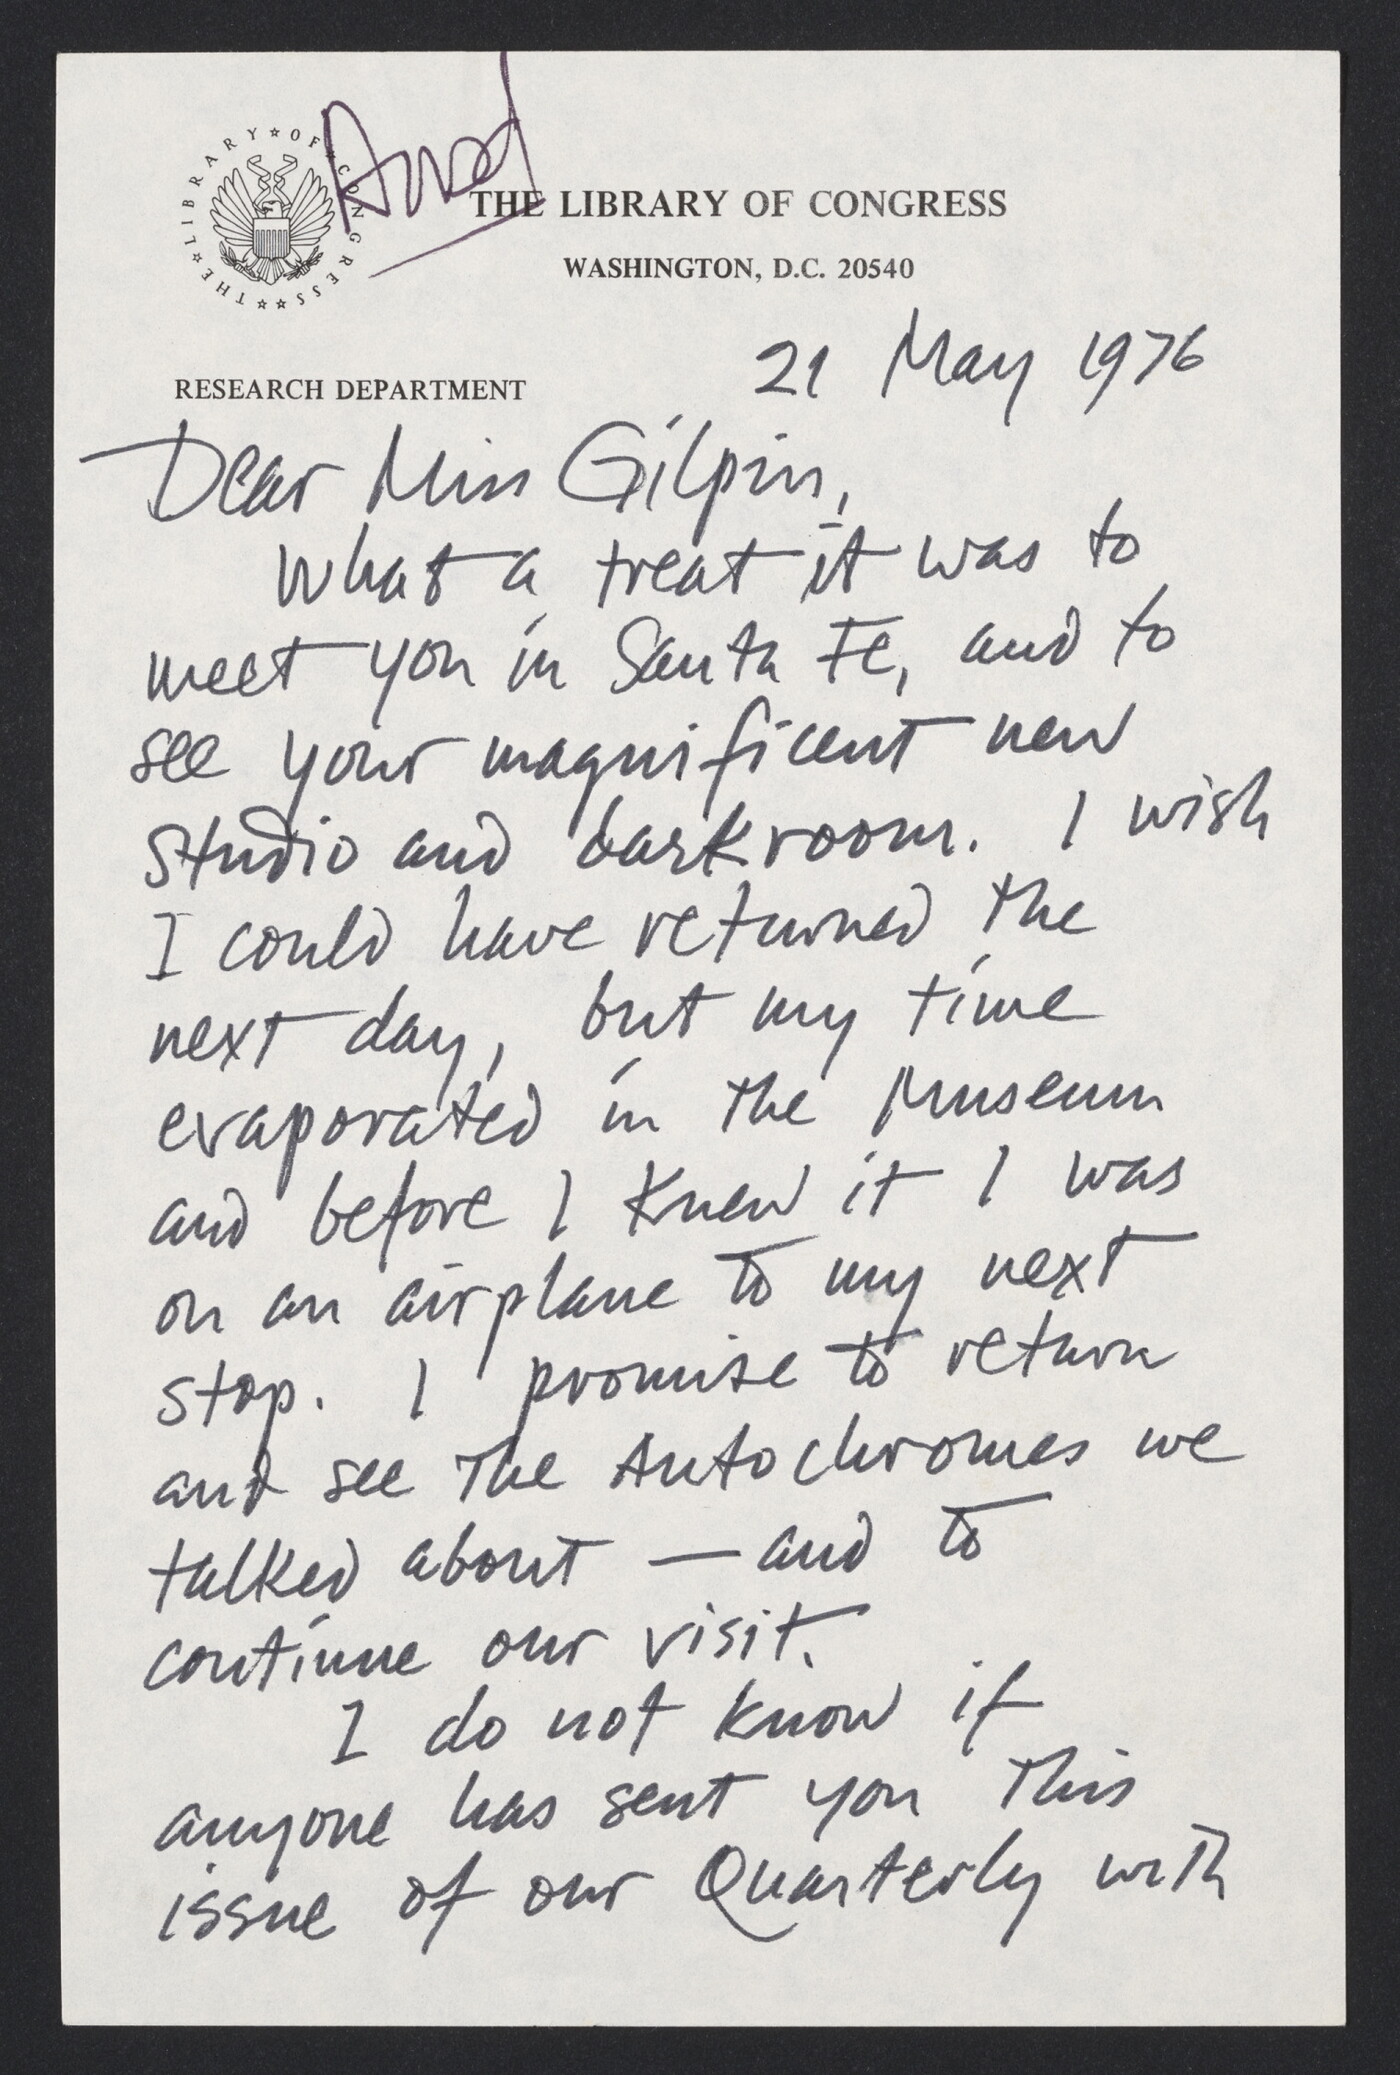 THE ★ LIBRARY ★ OF ★ CONGRESS ★★
Ansd
THE LIBRARY OF CONGRESS
WASHINGTON, D.C. 20540
RESEARCH DEPARTMENT
21 May 1976
Dear Miss Gilpin,
What a treat it was to
meet you in Santa Fe, and to
see your magnificent new
studio and darkroom. I wish
I could have returned the
next day, but my time
evaporated in the Museum
and before I knew it I was
on an airplane to my next
stop. I promise to return
and see the Autochromes we
talked about — and to
continue our visit.
I do not know if
anyone has sent you this
issue of our Quarterly with